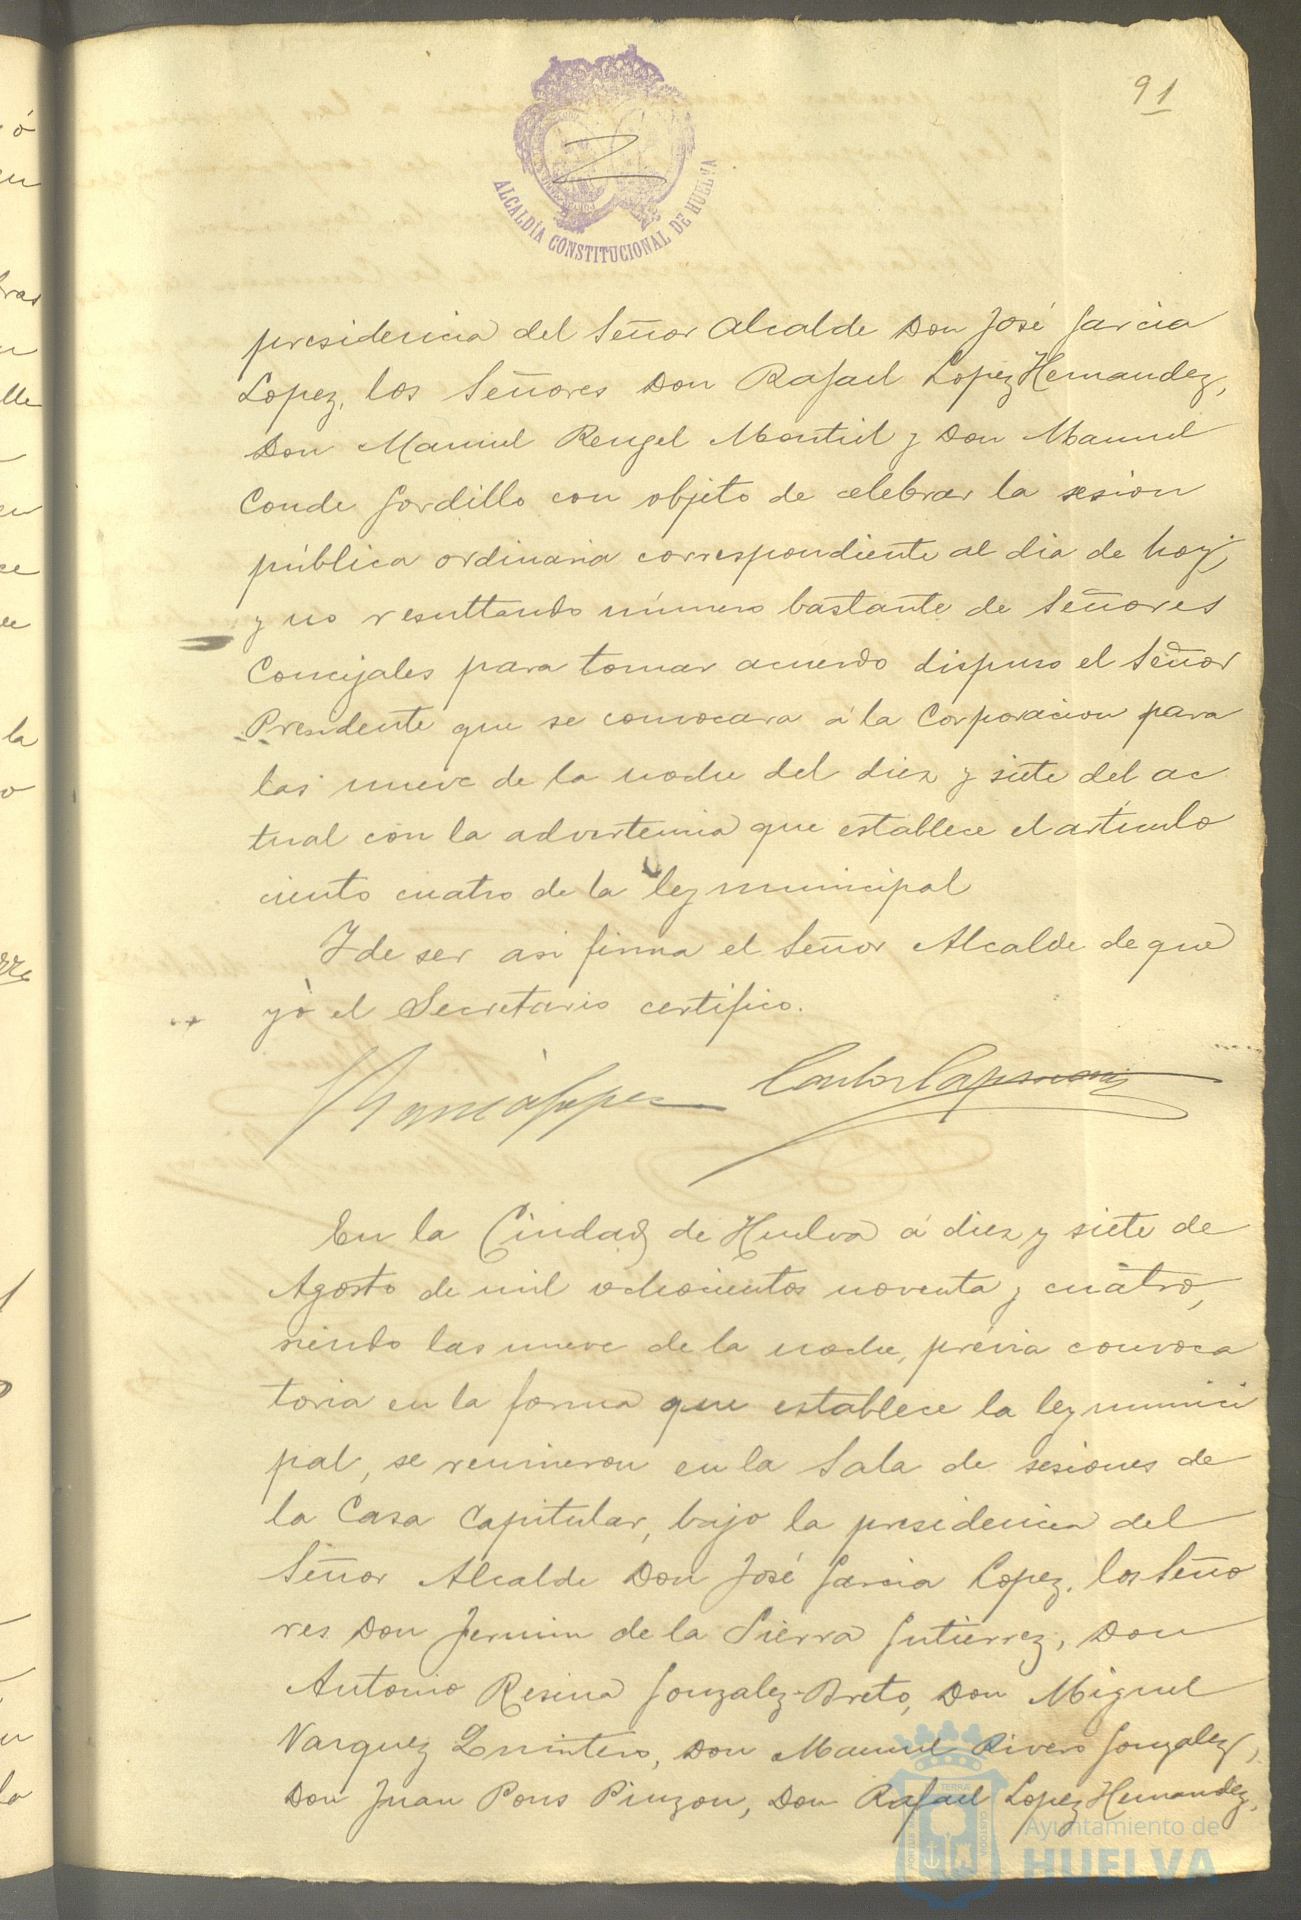 91
ALCALDÍA CONSTITUCIONAL DE HUELVA
presidencia del Señor Alcalde Don José Garcia
Lopez, los Señores Don Rafael Lopez Hernandez,
Don Manuel Rengel Montiel y Don Manuel
Conde Gordillo con objeto de celebrar la sesion
pública ordinaria correspondiente al dia de hoy,
y no resultando número bastante de Señores
Concejales para tomar acuerdo dispuso el Señor
Presidente que se convocara á la Corporacion para
las nueve de la noche del diez y siete del ac
tual con la advertencia que establece el artículo
ciento cuatro de la ley municipal
Y de ser asi firma el Señor Alcalde de que
yó el Secretario certifico.
En la Ciudad de Huelva á diez y siete de
Agosto de mil ochocientos noventa y cuatro,
siendo las nueve de la noche, prévia convoca
toria en la forma que establece la ley munici
pal, se reunieron en la Sala de sesiones de
la Casa Capitular, bajo la presidencia del
Señor Alcalde Don José Garcia Lopez, los Seño
res Don Fermin de la Sierra Gutierrez, Don
Antonio Resina Gonzalez-Breto, Don Miguel
Vazquez Quintero, Don Manuel Rivero Gonzalez,
Don Juan Pons Pinzon, Don Rafael Lopez Hernandez,
Ayuntamiento de
HUELVA